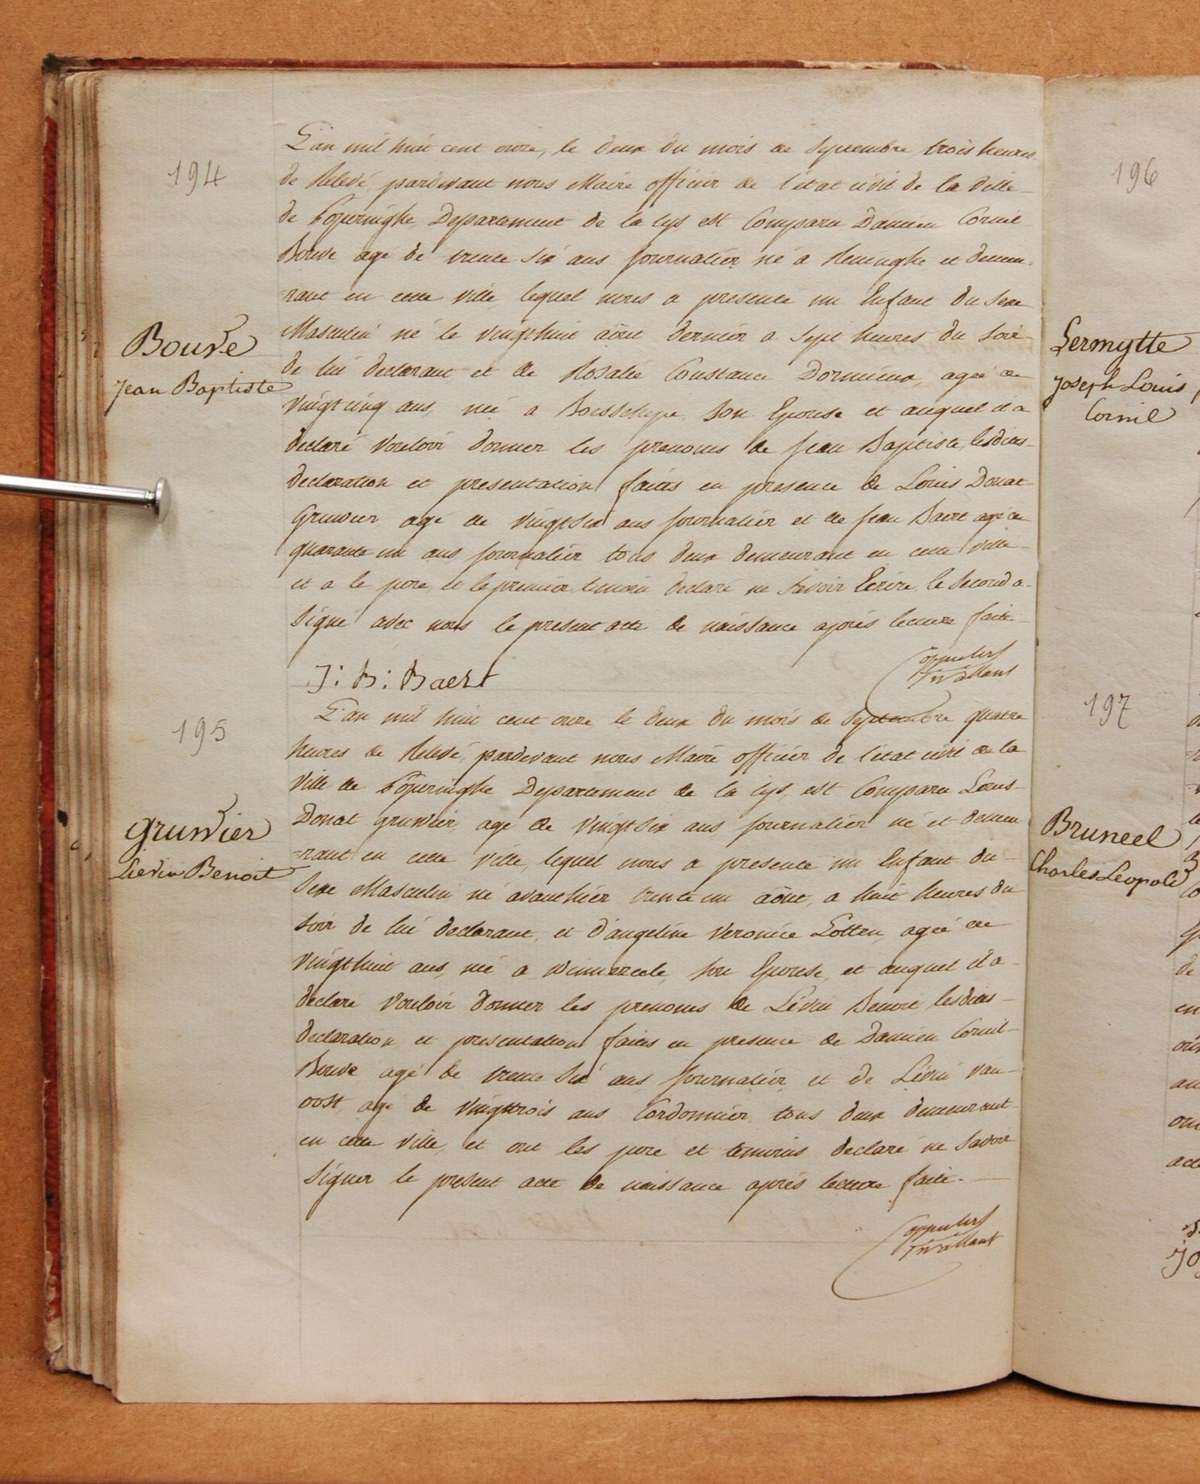 194
L'an mil huit cent onze, le deux du mois de Septembre trois heures
de Relevé, pardevant nous Maire officier de l'état civil de la ville
de Poperinghe, Departement de la Lys est Comparu Damien Cornil
Bouve agé de trente Six ans journalier né à Reninghe et demeu-
-rant en cette ville lequel nous a presenté un Enfant du Sexe
Masculin né le vingthuit aôut dernier a Sept heures du Soir
de lui declarant et de Rosalie Constance Dormieux, agée de
vingtcinq ans, née a Boesschepe Son Epouse et auquel il a
declaré vouloir donner les prenoms de jean Baptiste, lesdites
declaration et presentation faites en presence de Louis Donat
Gruwier agé de vingtsix ans journalier et de jean Baert agé de
quarante un ans journalier tous deux demeurant en cette ville
et a le pere, et le premier temoin declaré ne Savoir Ecrire, le Second a
Signé avec nous le present acte de naissance après lecture faite
Bouve
Jean Baptiste
J: B: Baert
195
L'an mil huit cent onze le deux du mois de Septembre quatre
heures de Relevé, pardevant nous Maire officier de l'état civil de la
Ville de Poperinghe Departement de la Lys, est Comparu Louis
Donat gruwier, agé de vingtsix ans journalier né et demeu
-rant en cette ville, lequel nous a presenté un Enfant du
Sexe Masculin né avanthier trente un aôut, a huit heures du
Soir de lui declarant, et d'angeline Veronice Lotten, agée de
vingthuit ans, née a Winnezeele, Son Epouse, et auquel il a
declaré vouloir donner les prenoms de Liévin Benoit lesdites
declaration et presentation faites en presence de Damien Cornil
Bouve agé de trente Six ans journalier, et de Liévin Van-
oost agé de vingttrois ans Cordonnier tous deux demeurant
en cette ville, et ont les pere et temoins declaré ne Savoir
Signer le present acte de naissance après lecture faite.
gruwier
Lievin Benoit
196
Lermytte
Joseph Louis
Cornil
197
Bruneel
Charles Leopold